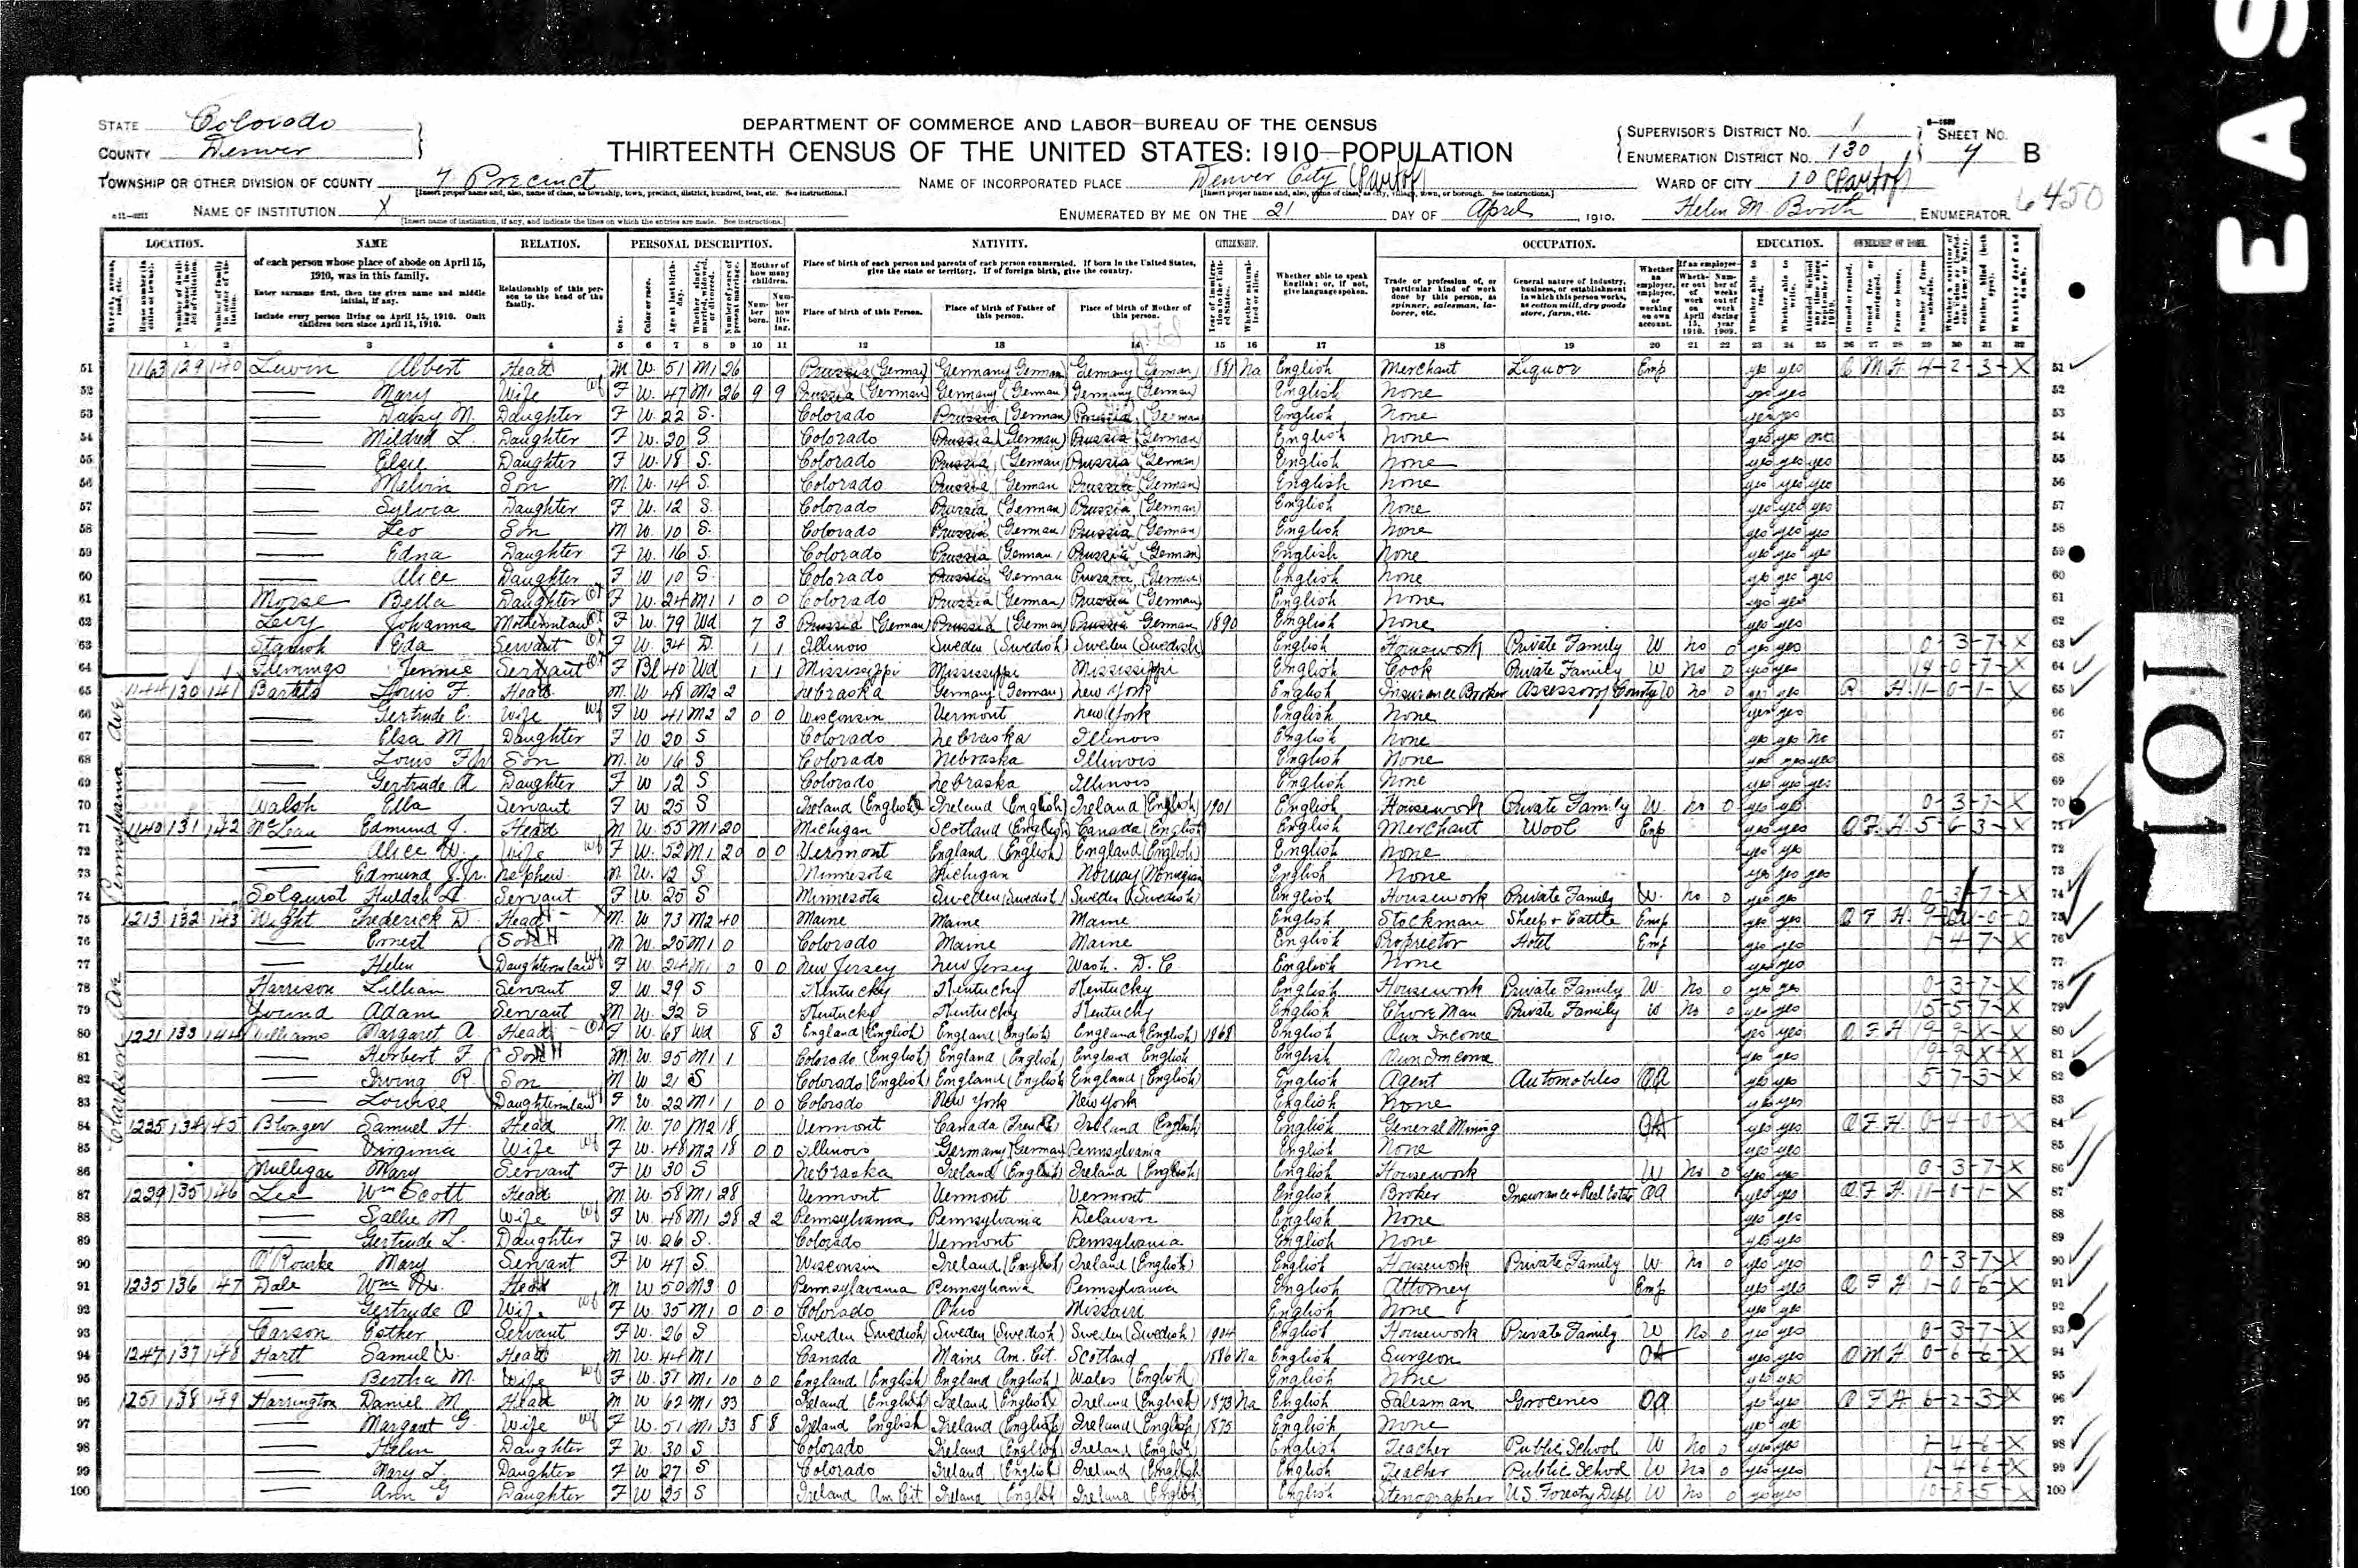 STATE Colorado
COUNTY Denver
DEPARTMENT OF COMMERCE AND LABOR—BUREAU OF THE CENSUS
THIRTEENTH CENSUS OF THE UNITED STATES: 1910—POPULATION
SUPERVISOR'S DISTRICT No. 1
ENUMERATION DISTRICT No. 130
SHEET No. 4 B
TOWNSHIP OR OTHER DIVISION OF COUNTY 7 Precinct
NAME OF INCORPORATED PLACE Denver City (Part of)
WARD OF CITY 10 (Part of)
NAME OF INSTITUTION X
ENUMERATED BY ME ON THE 21 DAY OF April, 1910. Helen M. Booth, ENUMERATOR.
6450
LOCATION. NAME RELATION. PERSONAL DESCRIPTION. NATIVITY. CITIZENSHIP. OCCUPATION. EDUCATION. OWNERSHIP OF HOME.
of each person whose place of abode on April 15, 1910, was in this family.
Enter surname first, then the given name and middle initial, if any.
Include every person living on April 15, 1910. Omit children born since April 15, 1910.
Relationship of this person to the head of the family.
Place of birth of each person and parents of each person enumerated. If born in the United States, give the state or territory. If of foreign birth, give the country.
Place of birth of this Person. Place of birth of Father of this person. Place of birth of Mother of this person.
Whether able to speak English; or, if not, give language spoken.
Trade or profession of, or particular kind of work done by this person, as spinner, salesman, laborer, etc.
General nature of industry, business, or establishment in which this person works, as cotton mill, dry goods store, farm, etc.
51 1163 129 140 Lewin Albert Head M W 51 M1 26 Prussia (German) Germany German Germany (German) 1881 Na English Merchant Liquor Emp yes yes O M H 4-2-3-X 51
52 Mary Wife F W 47 M1 26 9 9 Prussia (German) Germany (German) Germany (German) English None yes yes 52
53 Daisy M. Daughter F W 22 S Colorado Prussia (German) Prussia (German) English None yes yes 53
54 Mildred L. Daughter F W 20 S Colorado Prussia (German) Prussia (German) English None yes yes no 54
55 Elsie Daughter F W 18 S Colorado Prussia (German) Prussia (German) English None yes yes yes 55
56 Melvin Son M W 14 S Colorado Prussia (German) Prussia (German) English None yes yes yes 56
57 Sylvia Daughter F W 12 S Colorado Prussia (German) Prussia (German) English None yes yes yes 57
58 Leo Son M W 10 S Colorado Prussia (German) Prussia (German) English None yes yes yes 58
59 Edna Daughter F W 16 S Colorado Prussia (German) Prussia (German) English None yes yes yes 59
60 Alice Daughter F W 10 S Colorado Prussia German Prussia (German) English None yes yes yes 60
61 Morse Bella Daughter F W 24 M1 1 0 0 Colorado Prussia (German) Prussia (German) English None yes yes 61
62 Levy Johanna Motherinlaw F W 79 Wd 7 3 Prussia (German) Prussia (German) Prussia German 1890 English None yes yes 62
63 Eda Servant F W 34 D 1 1 Illinois Sweden (Swedish) Sweden (Swedish) English Housework Private Family W no 0 yes yes 0-3-7-X 63
64 Clemings Jennie Servant F Bl 40 Wd 1 1 Mississippi Mississippi Mississippi English Cook Private Family W no 0 yes yes 14-0-7-X 64
Pennsylvania Ave
65 1144 130 141 Bartels Louis F. Head M W 48 M2 2 Nebraska Germany (German) New York English Insurance Broker Assessors County W no 0 yes yes R H 11-0-1-X 65
66 Gertrude E. Wife F W 41 M2 2 0 0 Wisconsin Vermont New York English None yes yes 66
67 Elsa M Daughter F W 20 S Colorado Nebraska Illinois English None yes yes no 67
68 Louis F Jr Son M W 16 S Colorado Nebraska Illinois English None yes yes yes 68
69 Gertrude A Daughter F W 12 S Colorado Nebraska Illinois English None yes yes yes 69
70 Walsh Ella Servant F W 25 S Ireland (English) Ireland (English) Ireland (English) 1901 English Housework Private Family W no 0 yes yes 0-3-7-X 70
71 1140 131 142 McLean Edmund J. Head M W 55 M1 20 Michigan Scotland (English) Canada (English) English Merchant Wool Emp yes yes O F H 5-6-3-X 71
72 Alice W. Wife F W 52 M1 20 0 0 Vermont England (English) England (English) English None yes yes 72
73 Edmund J. Jr. Nephew M W 12 S Minnesota Michigan Norway (Norwegian English None yes yes yes 73
74 Solquist Huldah A. Servant F W 25 S Minnesota Sweden (Swedish) Sweden (Swedish) English Housework Private Family W no 0 yes yes 0-3-7-X 74
Clarkson Ave
75 1213 132 143 Wight Frederick D. Head M W 73 M2 40 Maine Maine Maine English Stockman Sheep + Cattle Emp yes yes O F H 75
76 Ernest Son M W 25 M1 0 Colorado Maine Maine English Proprietor Hotel Emp yes yes 1-4-7-X 76
77 Helen Daughterinlaw F W 24 M1 0 0 0 New Jersey New Jersey Wash. D.C. English None yes yes 77
78 Harrison Lillian Servant F W 29 S Kentucky Kentucky Kentucky English Housework Private Family W No 0 yes yes 0-3-7-X 78
79 Adam Servant M W 32 S Kentucky Kentucky Kentucky English Chore Man Private Family W No 0 yes yes 15-5-7-X 79
80 1221 133 144 Williams Margaret A. Head F W 68 Wd 8 3 England (English) England (English) England (English) 1868 English Own Income yes yes O F H 19-9-X-X 80
81 Herbert F Son M W 25 M1 1 Colorado (English) England (English) England English English Own Income yes yes 19-9-X-X 81
82 Irving R. Son M W 21 S Colorado (English) England (English England (English) English Agent Automobiles OA yes yes 5-7-3-X 82
83 Louise Daughterinlaw F W 22 M1 1 0 0 Colorado New York New York English None yes yes 83
84 1235 134 145 Blonger Samuel H. Head M W 70 M2 18 Vermont Canada (French) Ireland (English English General Mining OA yes yes O F H 0-4-0-X 84
85 Virginia Wife F W 48 M2 18 0 0 Illinois Germany (German) Pennsylvania English None yes yes 85
86 Mulligan Mary Servant F W 30 S Nebraska Ireland (English) Ireland (English) English Housework W No 0 yes yes 0-3-7-X 86
87 1239 135 146 Lee Wm Scott Head M W 58 M1 28 Vermont Vermont Vermont English Broker Insurance + Real Estate OA yes yes O F H 11-0-1-X 87
88 Sallie M Wife F W 48 M1 28 2 2 Pennsylvania Pennsylvania Delaware English None yes yes 88
89 Gertrude L. Daughter F W 26 S Colorado Vermont Pennsylvania English None yes yes 89
90 O'Rourke Mary Servant F W 47 S Wisconsin Ireland (English) Ireland (English) English Housework Private Family W No 0 yes yes 0-3-7-X 90
91 1235 136 147 Dale Wm Head M W 50 M3 0 Pennsylavania Pennsylvania Pennsylvania English Attorney Emp yes yes O F H 1-0-6-X 91
92 Gertrude O Wife F W 35 M1 0 0 0 Colorado Ohio Missouri English None yes yes 92
93 Carson Esther Servant F W 26 S Sweden (Swedish) Sweden (Swedish) Sweden (Swedish) 1904 English Housework Private Family W No 0 yes yes 0-3-7-X 93
94 1247 137 148 Hartt Samuel W. Head M W 44 M1 Canada Maine Am. Cit. Scotland 1886 Na English Surgeon OA yes yes O M H 0-6-6-X 94
95 Bertha M. Wife F W 37 M1 10 0 0 England (English) England (English) Wales (English) English None yes yes 95
96 1251 138 149 Harrington Daniel M Head M W 62 M1 33 Ireland (English) Ireland (English) Ireland (English) 1873 Na English Salesman Groceries OA yes yes O F H 6-2-3-X 96
97 Margaret G. Wife F W 51 M1 33 8 8 Ireland English Ireland (English) Ireland (English) 1875 English None yes yes 97
98 Helen Daughter F W 30 S Colorado Ireland (English) Ireland (English) English Teacher Public School W No 0 yes yes 1-4-6-X 98
99 Mary L. Daughter F W 27 S Colorado Ireland (English) Ireland (English English Teacher Public School W No 0 yes yes 1-4-6-X 99
100 Ann G Daughter F W 25 S Ireland Am Cit Ireland (English Ireland (English English Stenographer U.S. Forestry Dept W No 0 yes yes 10-8-5-X 100
EAS
101